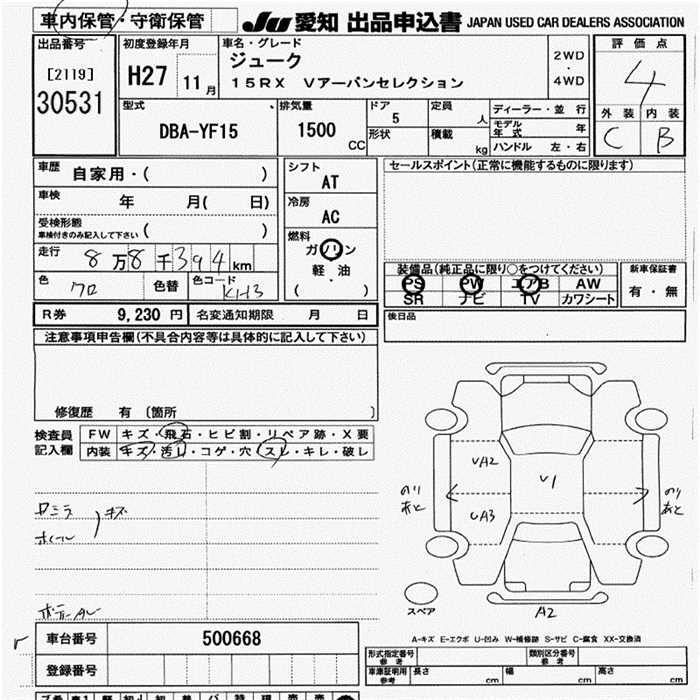 車内保管・守衛保管 JU 愛知 出品申込書 JAPAN USED CAR DEALERS ASSOCIATION
出品番号 初度登録年月 車名・グレード 評価点
[2119] H27 11月 ジューク 2WD・4WD 4
30531 15RX Vアーバンセレクション
型式 排気量 ドア 定員 ディーラー・並行 外装 内装
DBA-YF15 1500 CC 5 人 モデル年式 年 C B
形状 積載 kg ハンドル 左・右
車歴 自家用・( ) シフト セールスポイント(正常に機能するものに限ります)
AT
車検 年 月( 日) 冷房
AC
受検形態
車検付きのみ記入して下さい ( ) 燃料
ガソリン
走行 8万8千394km 軽・油
( )
装備品(純正品に限り○をつけてください) 新車保証書
色 クロ 色替 色コード KH3 PS PW エアB AW 有・無
SR ナビ TV カワシート
R券 9,230円 名変通知期限 月 日 後日品
注意事項申告欄(不具合内容等は具体的に記入して下さい)
修復歴 有 〔箇所 〕
検査員 FW キズ・飛石・ヒビ割・リペア跡・X要
記入欄 内装 キズ・汚レ・コゲ・穴・スレ・キレ・破レ
UA2
U1
UA3
のりあと
のりあと
ホイール
キズ
スペア
A2
車台番号 500668
A-キズ E-エクボ U-凹み W-補修跡 S-サビ C-腐食 XX-交換済
登録番号
形式指定番号 参考 類別区分番号 参考
車庫証明用 参考 長さ cm 幅 cm 高さ cm